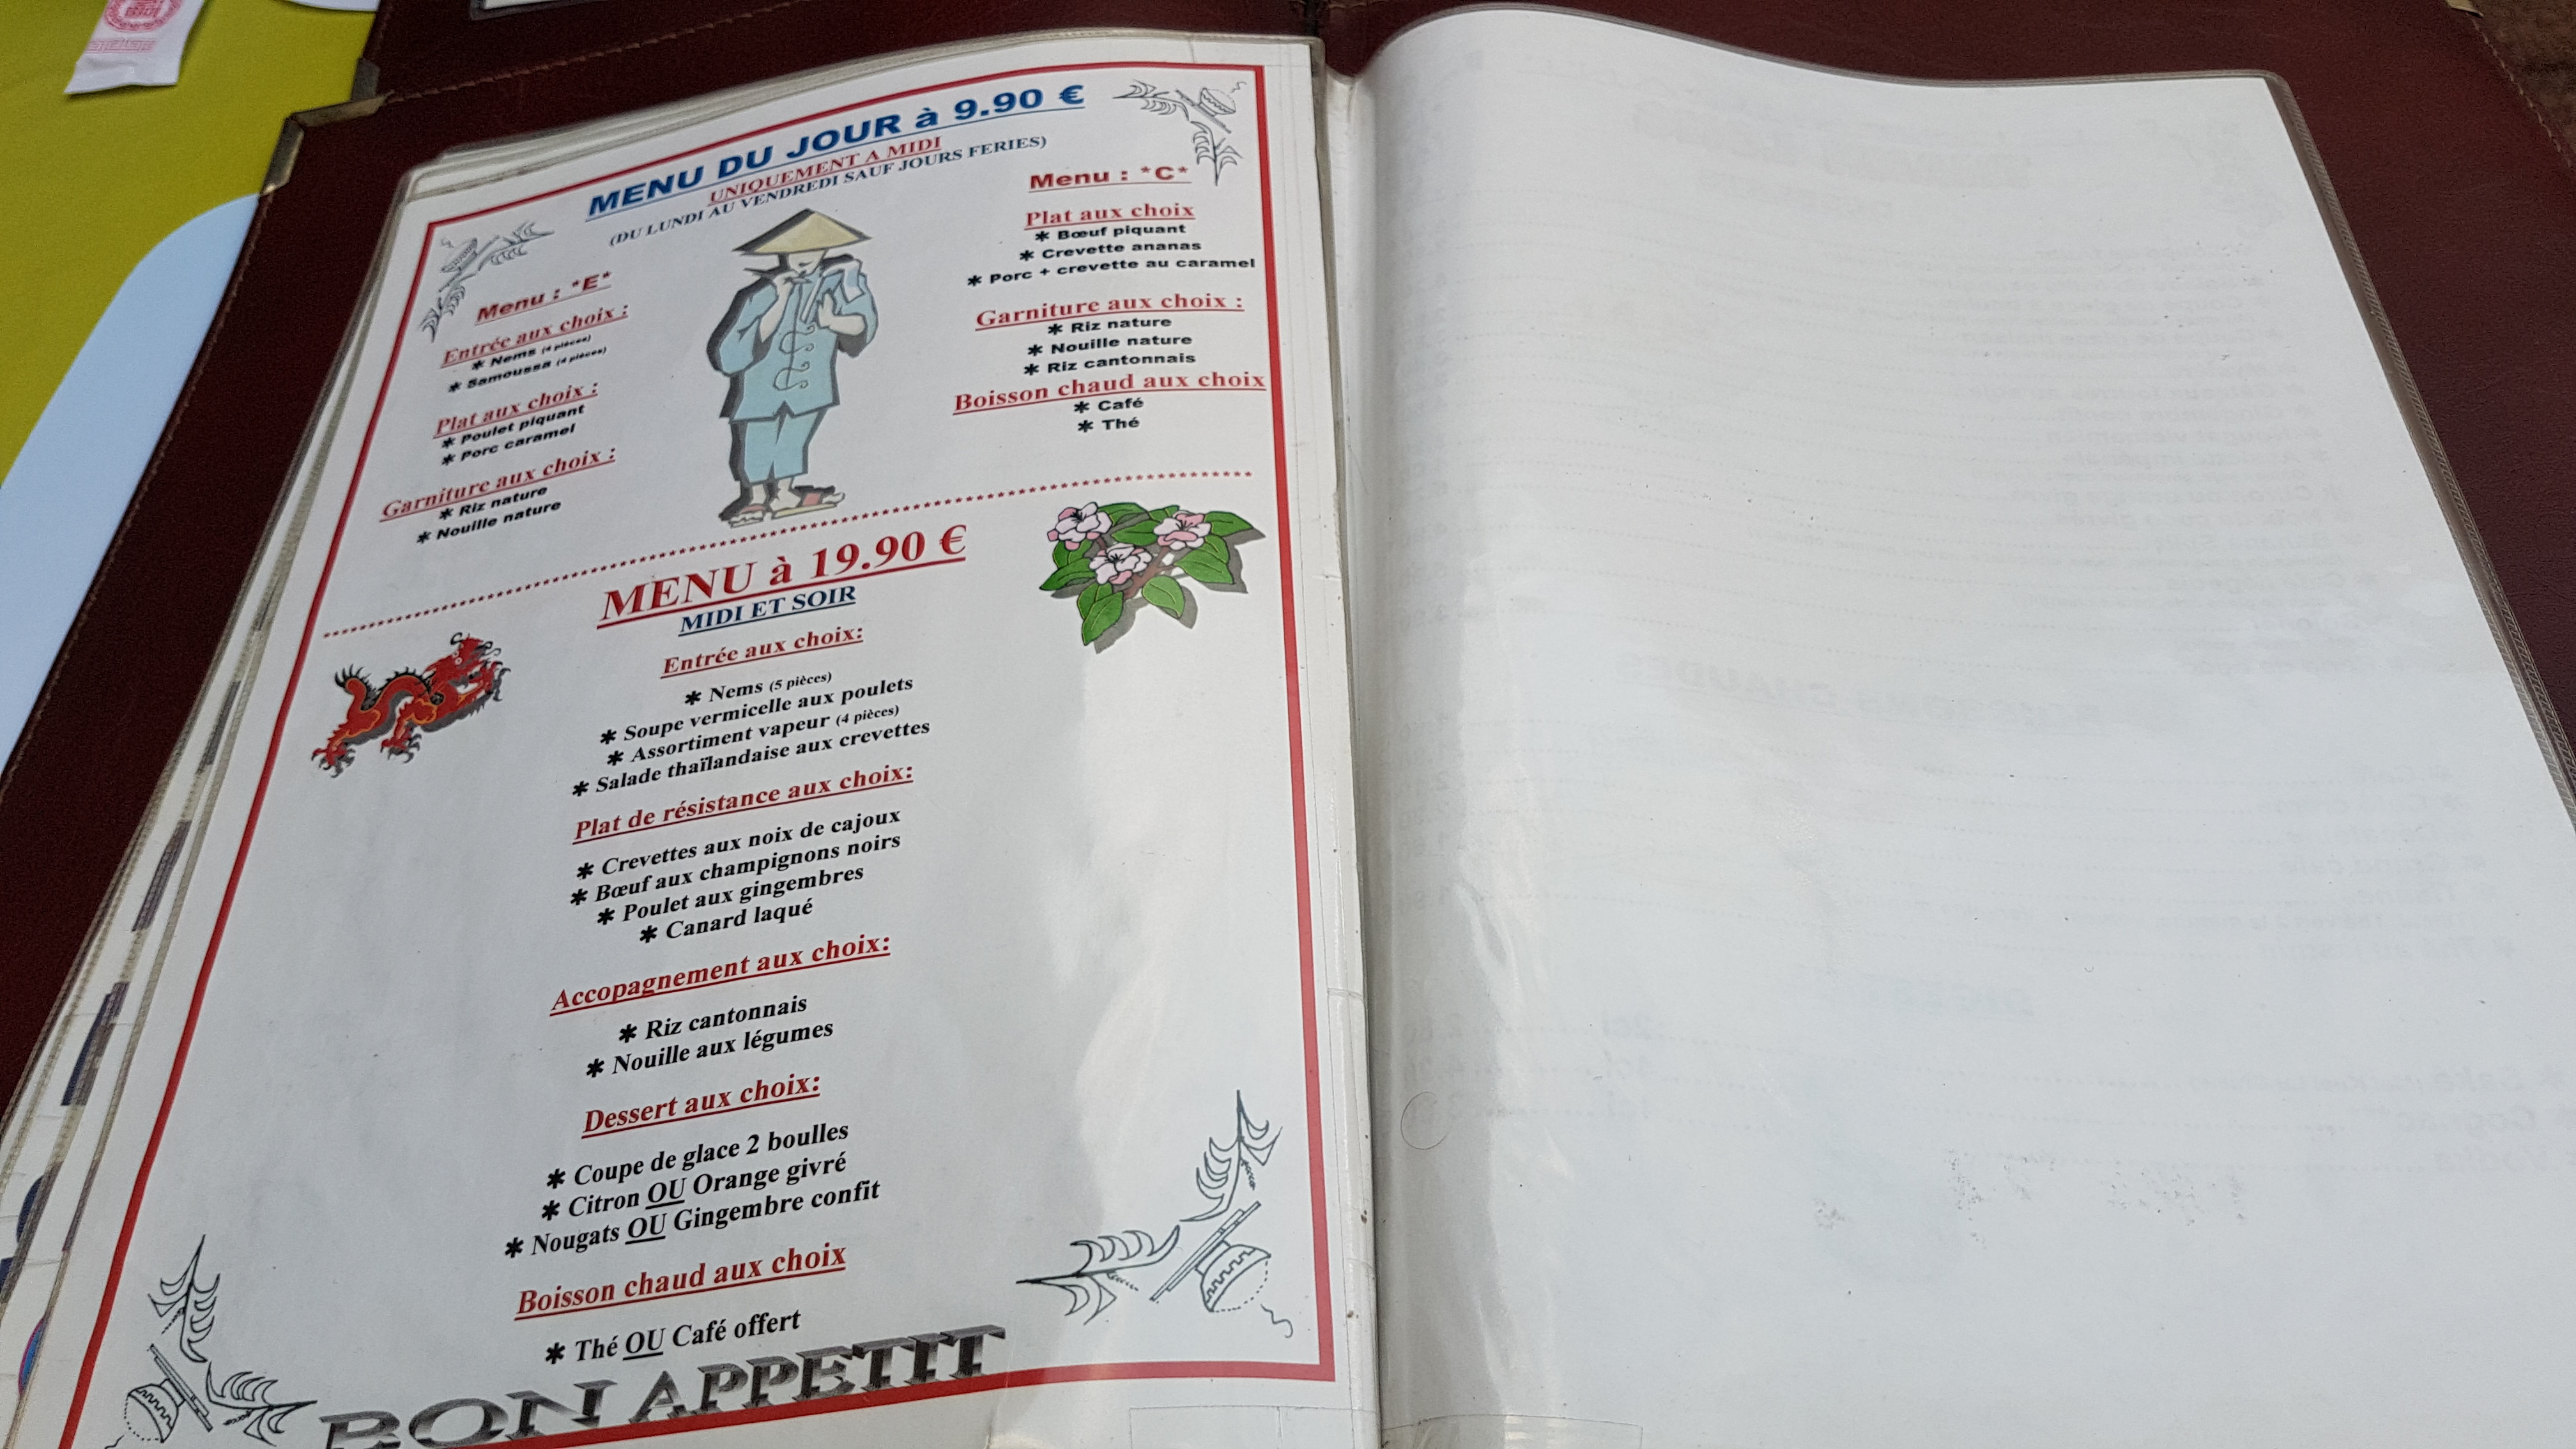 MENU DU JOUR à 9.90 €
UNIQUEMENT A MIDI
(DU LUNDI AU VENDREDI SAUF JOURS FERIES)
Menu : *E*
Entrée aux choix :
* Nems (4 pièces)
* Samoussa (4 pièces)
Plat aux choix :
* Poulet piquant
* Porc caramel
Garniture aux choix :
* Riz nature
* Nouille nature
Menu : *C*
Plat aux choix
* Bœuf piquant
* Crevette ananas
* Porc + crevette au caramel
Garniture aux choix :
* Riz nature
* Nouille nature
* Riz cantonnais
Boisson chaud aux choix
* Café
* Thé
MENU à 19.90 €
MIDI ET SOIR
Entrée aux choix:
* Nems (5 pièces)
* Soupe vermicelle aux poulets
* Assortiment vapeur (4 pièces)
* Salade thaïlandaise aux crevettes
Plat de résistance aux choix:
* Crevettes aux noix de cajoux
* Bœuf aux champignons noirs
* Poulet aux gingembres
* Canard laqué
Accopagnement aux choix:
* Riz cantonnais
* Nouille aux légumes
Dessert aux choix:
* Coupe de glace 2 boulles
* Citron OU Orange givré
* Nougats OU Gingembre confit
Boisson chaud aux choix
* Thé OU Café offert
BON APPETIT